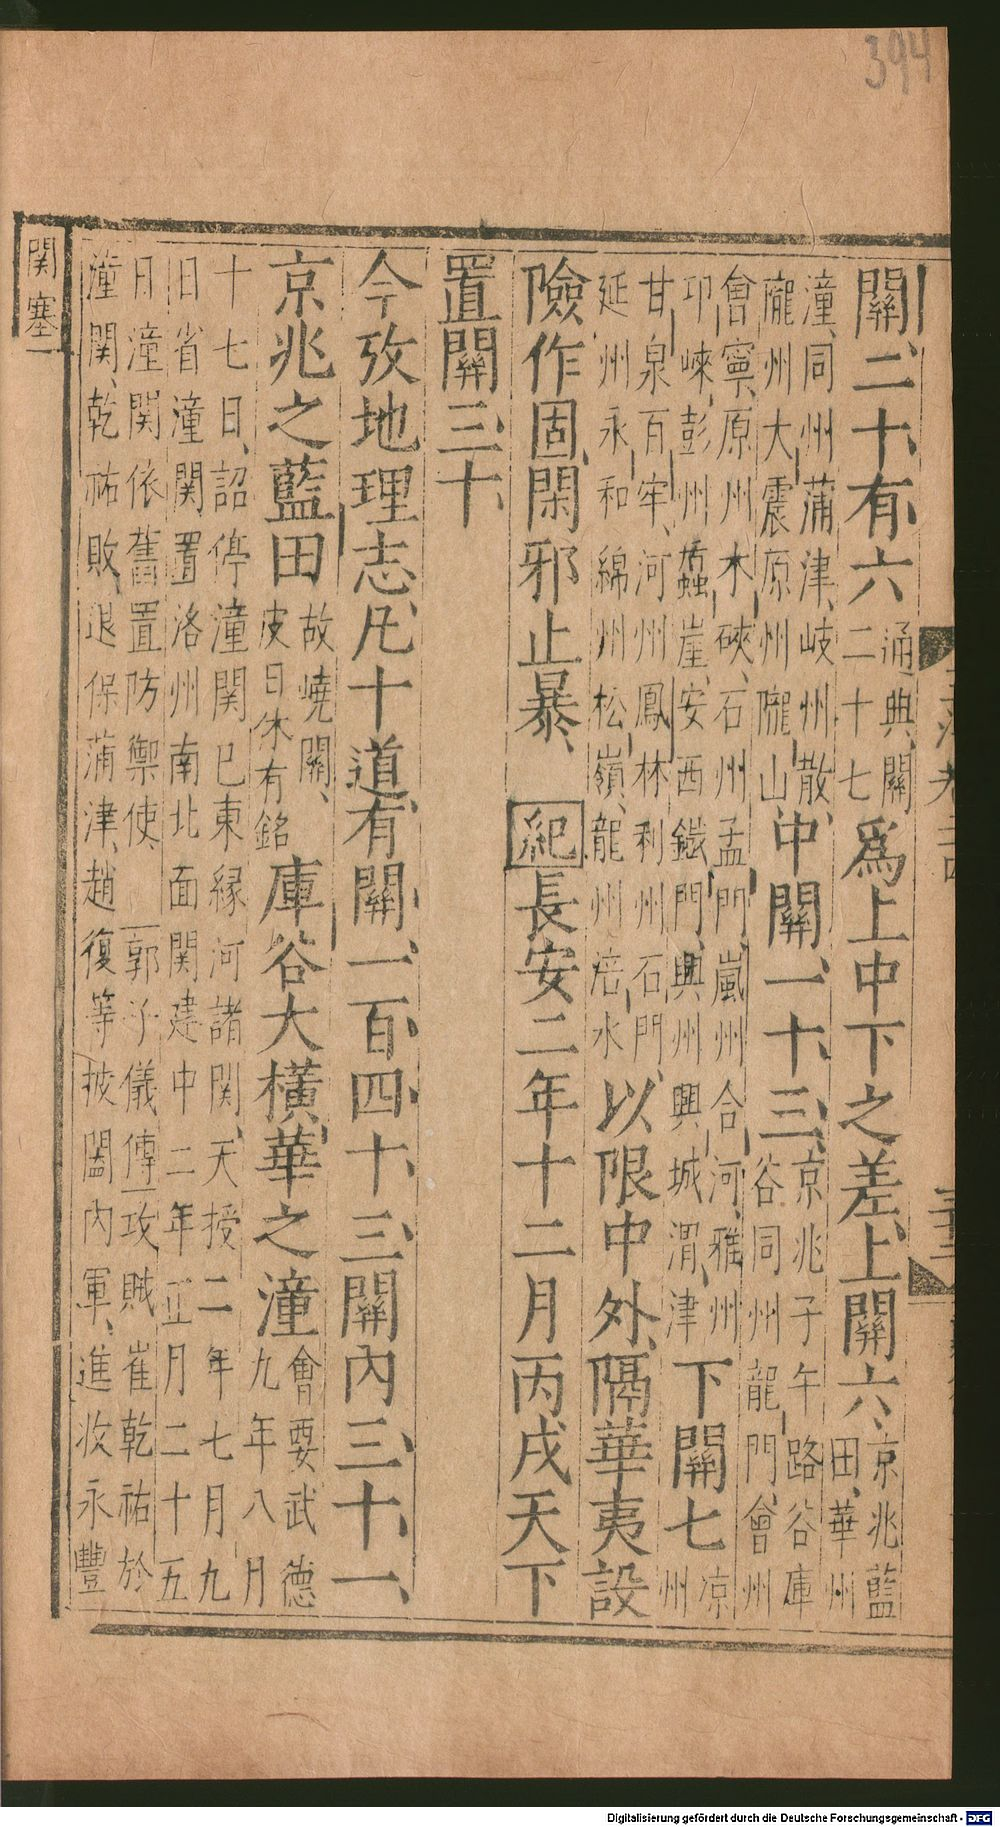 394
關二十有六通典關二十七爲上中下之差上關六京兆藍田華州
潼同州蒲津岐州散隴州大震原州隴山中關一十三京兆子午路谷庫谷同州龍門會州
會寧原州木硤石州孟門嵐州合河雅州卭崍彭州蠶崖安西鐵門興州興城渭津下關七凉州
甘泉百牢河州鳳林利州石門延州永和綿州松嶺龍州涪水以限中外隔華夷設
險作固閑邪止暴紀長安二年十二月丙戌天下
置關三十
今攷地理志凡十道有關一百四十三關內三十一
京兆之藍田故嶢關皮日休有銘庫谷大橫華之潼會要武德九年八月
十七日詔停潼關已東緣河諸關天授二年七月九日省潼関置洛州南北面関建中二年正月二十五
日潼関依舊置防禦使郭子儀傳攻賊崔乾祐於潼関乾祐敗退保蒲津趙復等披闔內軍進收永豐
関塞一
Digitalisierung gefördert durch die Deutsche Forschungsgemeinschaft - DFG